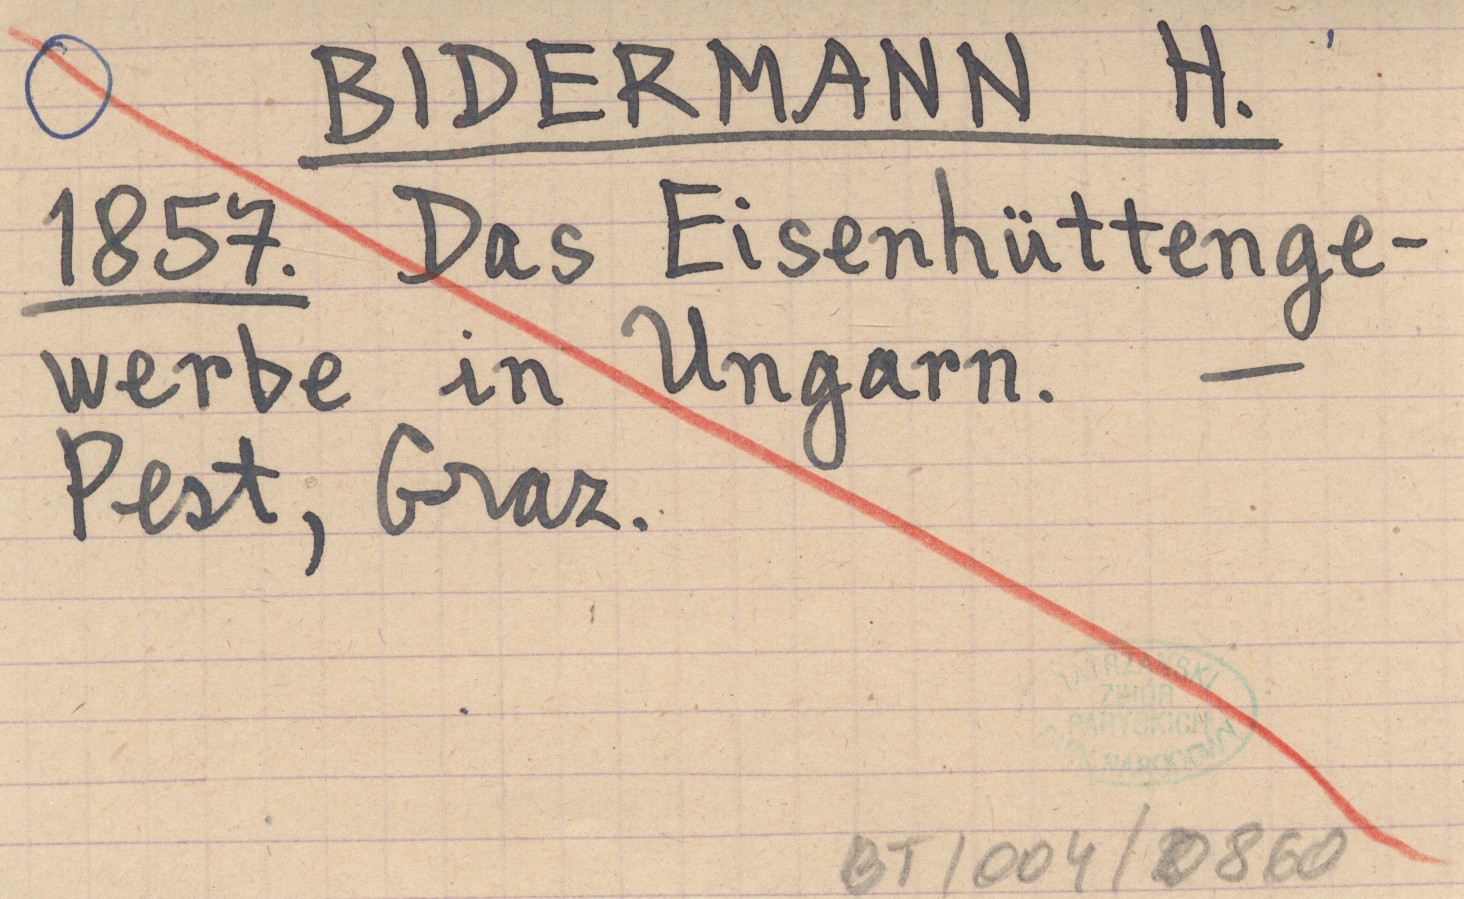 BIDERMANN H.
1857. Das Eisenhüttenge-
werbe in Ungarn. —
Pest, Graz.
TATRZAŃSKI
ZBIÓR
PARYSKICH
NARODOWY
BT/004/20860